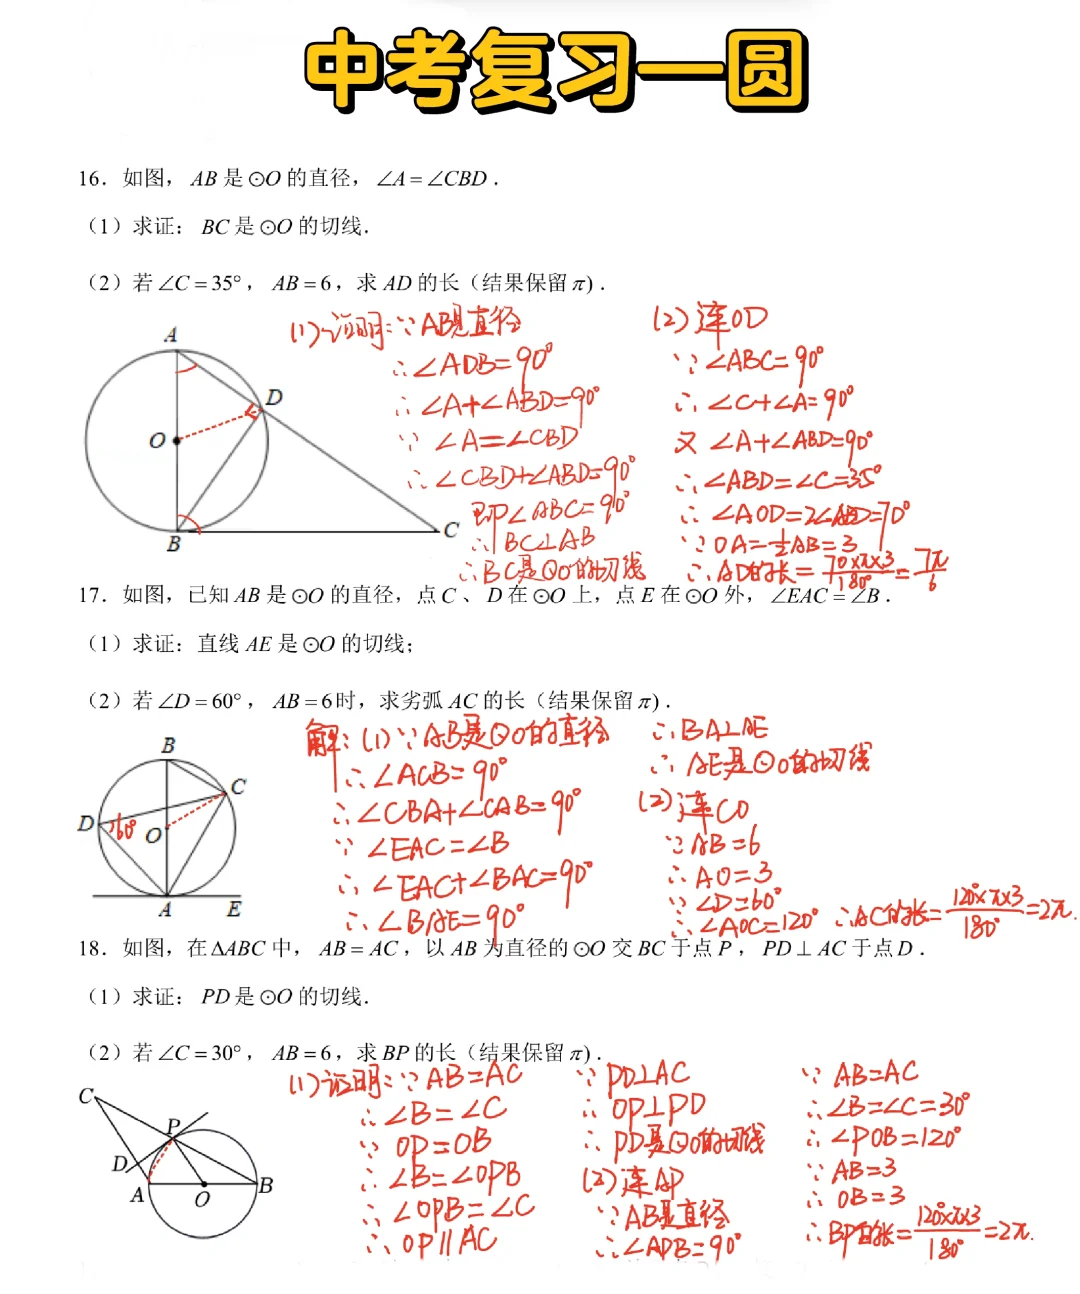 中考复习一圆
16．如图，AB 是⊙O 的直径，∠A=∠CBD．
（1）求证：BC 是⊙O 的切线．
（2）若∠C=35°，AB=6，求AD 的长（结果保留π）．
A
D
O
B
C
(1)证明:∵AB是直径
∴∠ADB=90°
∴∠A+∠ABD=90°
∵∠A=∠CBD
∴∠CBD+∠ABD=90°
即∠ABC=90°
∴BC⊥AB
∴BC是⊙O的切线
(2)连OD
∵∠ABC=90°
∴∠C+∠A=90°
又∠A+∠ABD=90°
∴∠ABD=∠C=35°
∴∠AOD=2∠ABD=70°
∵OA=½AB=3
∴AD的长=70×π×3/180°=7π/6
17．如图，已知AB 是⊙O 的直径，点C、D 在⊙O 上，点E 在⊙O 外，∠EAC=∠B．
（1）求证：直线AE 是⊙O 的切线；
（2）若∠D=60°，AB=6时，求劣弧AC 的长（结果保留π）．
B
C
D
60°
O
A
E
解:(1)∵AB是⊙O的直径
∴∠ACB=90°
∴∠CBA+∠CAB=90°
∵∠EAC=∠B
∴∠EAC+∠BAC=90°
∴∠BAE=90°
∴BA⊥AE
∴AE是⊙O的切线
(2)连CO
∵AB=6
∴AO=3
∵∠D=60°
∴∠AOC=120°
∴AC的长=120°×π×3/180°=2π.
18．如图，在△ABC 中，AB=AC，以AB 为直径的⊙O 交BC 于点P，PD⊥AC 于点D．
（1）求证：PD是⊙O 的切线．
（2）若∠C=30°，AB=6，求BP 的长（结果保留π）．
C
P
D
A
O
B
(1)证明:∵AB=AC
∴∠B=∠C
∵OP=OB
∴∠B=∠OPB
∴∠OPB=∠C
∴OP∥AC
∵PD⊥AC
∴OP⊥PD
∴PD是⊙O的切线
(2)连AP
∵AB是直径
∴∠APB=90°
∵AB=AC
∴∠B=∠C=30°
∴∠POB=120°
∵AB=3
∴OB=3
∴BP的长=120°×π×3/180°=2π.